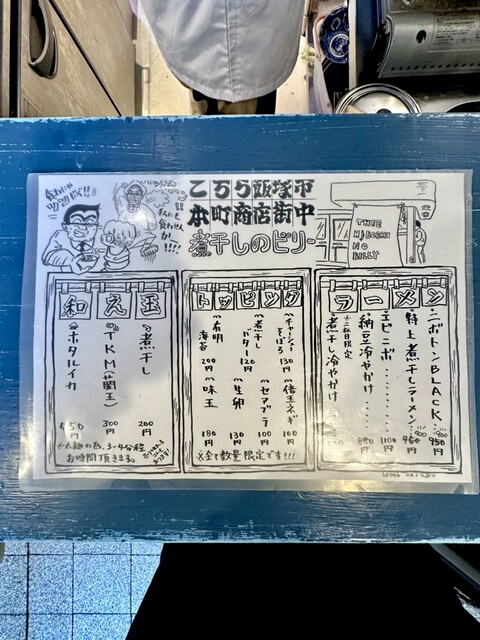 こちら飯塚市
本町商店街中
煮干しのビリー
THEE
NIBOSHI
NO
BILLY
ラーメン
ニボトンBLACK 950円
特上煮干しラーメン 950円
エビニボ 1100円
納豆冷やかけ 880円
煮干し冷やかけ
トッピング
チャーシューそぼろ 130円
煮干しバター 120
有明海苔 200円
倍玉ネギ 100円
セアブラ 100
生卵 130円
味玉 180円
※全て数量限定です!!!
和え玉
煮干し 200円
TKM(蘭王) 300円
ホタルイカ 450円
※太麺の為、3~4分程
お時間頂きます。